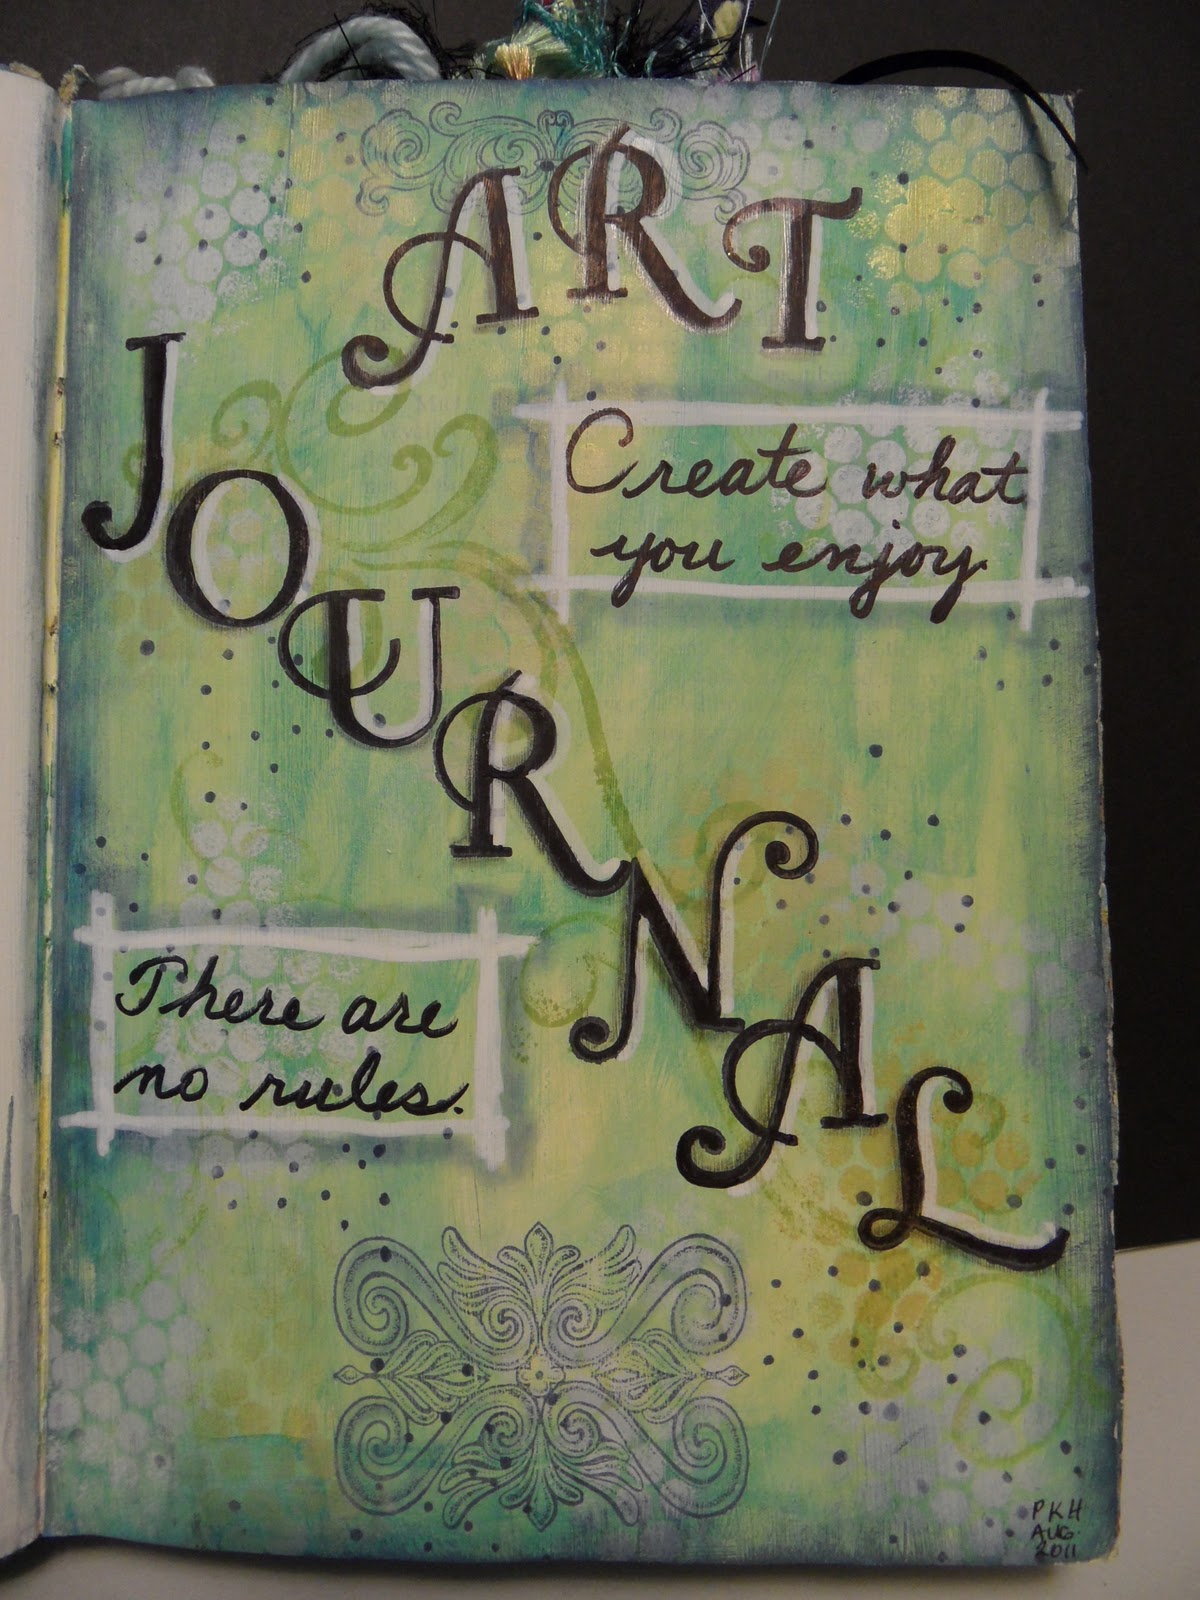 ART
JOURNAL
Create what
you enjoy.
There are
no rules.
PKH
AUG.
2011